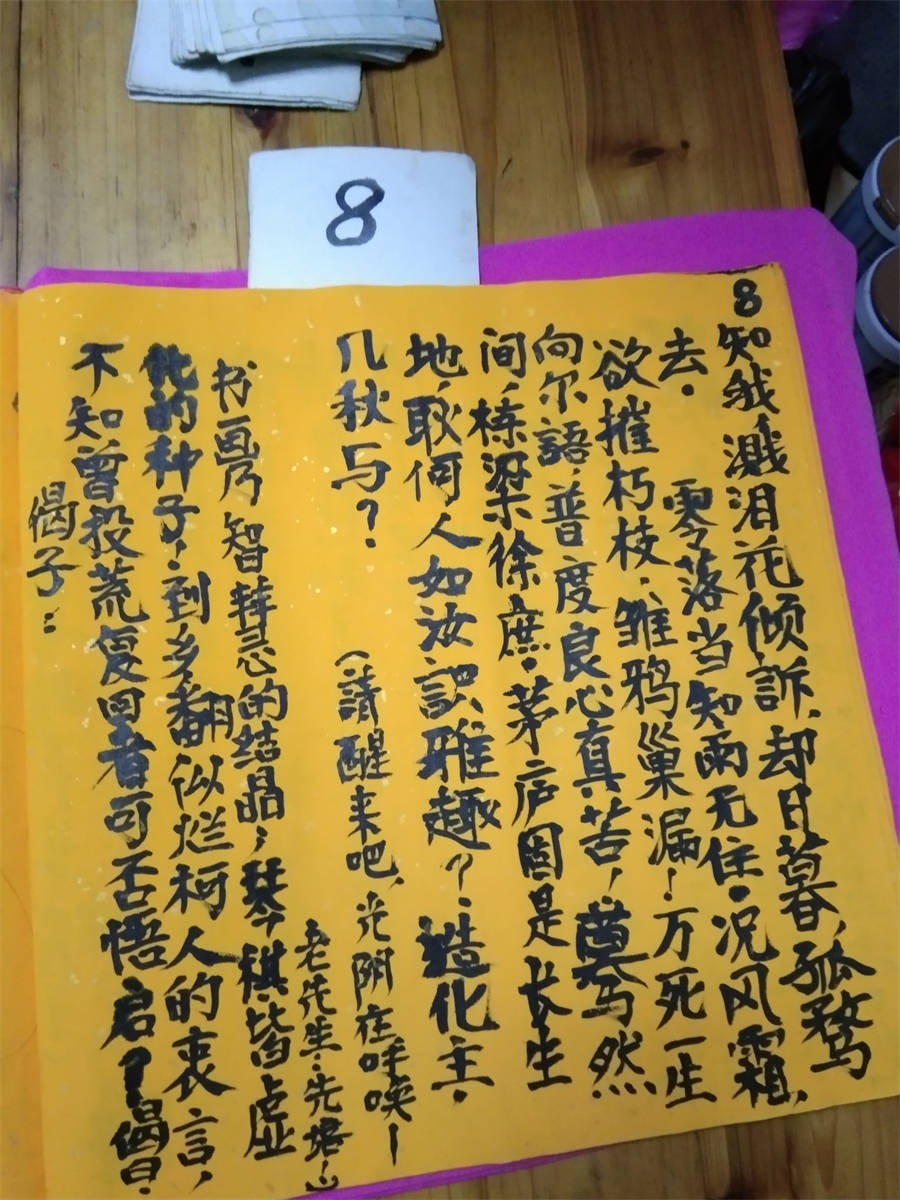 8
8
知我，溅泪花倾訴，却日暮，孤鹜
去。零落当知雨无住。况风霜，
欲摧朽枝，雏鸦巢漏！万死一生
向尔語，普度良心真苦！蓦然
间，栋梁徐庶。茅庐固是长生
地，耿何人如汝，識雅趣？造化主。
几秋与？
（請醒来吧，光阴在呼唤！
老先生：先培！）
书画乃智慧的结晶；琴棋皆虚
化的种子！到乡翻似烂柯人的衷言，
不知曾投荒复回者可否悟启？偈曰：
偈子：